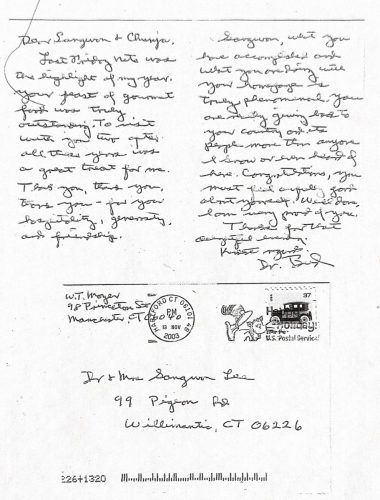 Dear Sangwon & Chunja,
Last Friday nite was
the highlight of my year.
Your feast of gourmet
food was truly
outstanding. To visit
with you two after
all these years was
a great treat for me.
Thank you, thank you,
thank you - for your
hospitality, generosity,
and friendship.
Sangwon, what you
have accomplished and
what you are doing with
your homepage is
truly phenomenal. You
are really giving back to
your country and its
people more than anyone
I know or ever heard of
here. Congratulations, you
must feel awfully good
about yourself. Well done,
I am very proud of you.
Thanks for that
delightful evening.
Kindest regards,
Dr. Bud
W.T. Moyer
98 Princeton St
Manchester, CT 06040
HARTFORD CT 06101
PM
13 NOV
2003
37
U.S. Postal Service
Dr & Mrs Sangwon Lee
99 Pigeon Rd
Willimantic, CT 06226
226+1320